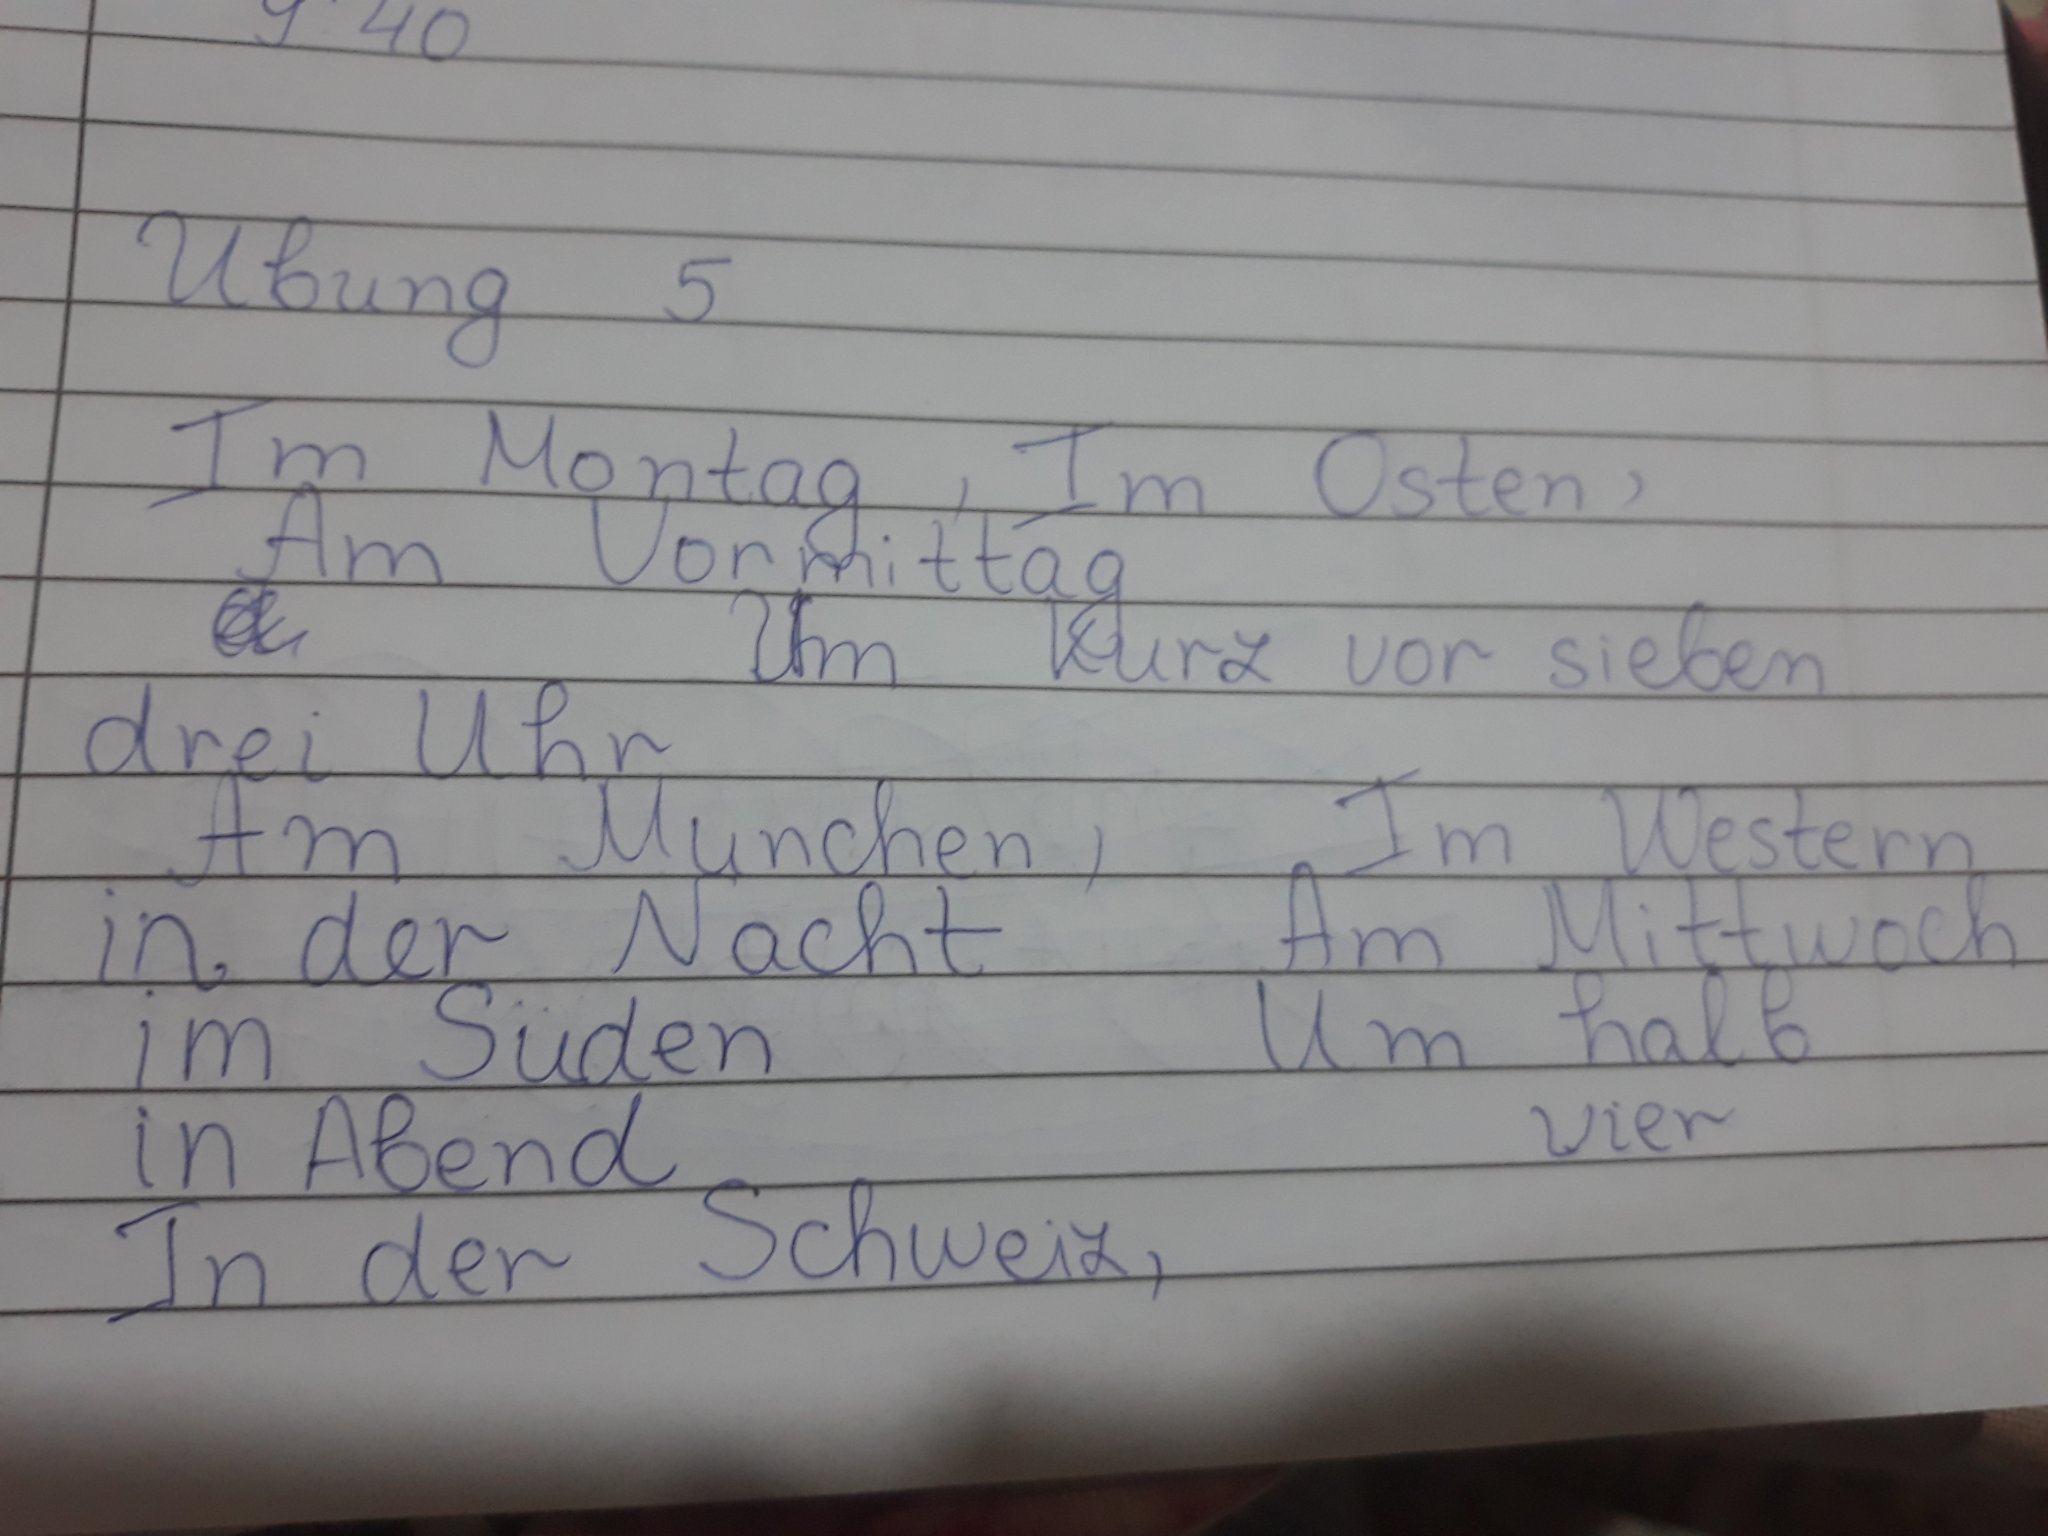 9:40
Ubung 5
Im Montag, Im Osten,
Am Vormittag
Um kurz vor sieben
drei Uhr
Am Munchen, Im Western
in der Nacht Am Mittwoch
im Süden Um halb
vier
in Abend
In der Schweiz,